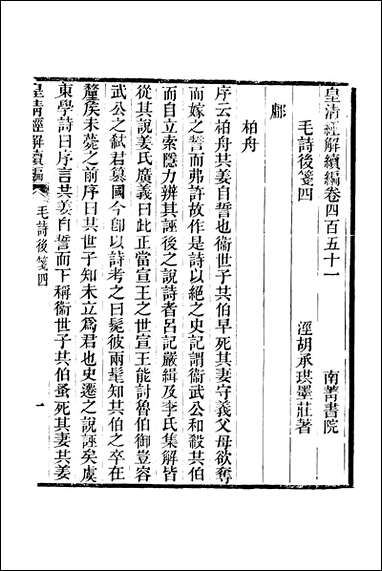 皇淸經解續編卷四百五十一
南菁書院
毛詩後箋四
涇胡承珙墨莊著
鄘
柏舟
序云柏舟共姜自誓也衞世子共伯早死其妻守義父母欲奪
而嫁之誓而弗許故作是詩以絕之史記謂衞武公和殺共伯
而自立索隱力辨其誣後之說詩者呂記嚴緝及李氏集解皆
從其說姜氏廣義曰此正當宣王之世宣王能討魯伯御豈容
武公之弒君簒國今卽以詩考之曰髧彼兩髦知其伯之卒在
釐侯未薨之前序曰其世子知未立爲君也史遷之說誣矣虞
東學詩曰序言共姜自誓而下稱衞世子共伯蚤死其妻共姜
皇淸經解續編
毛詩後箋四
一